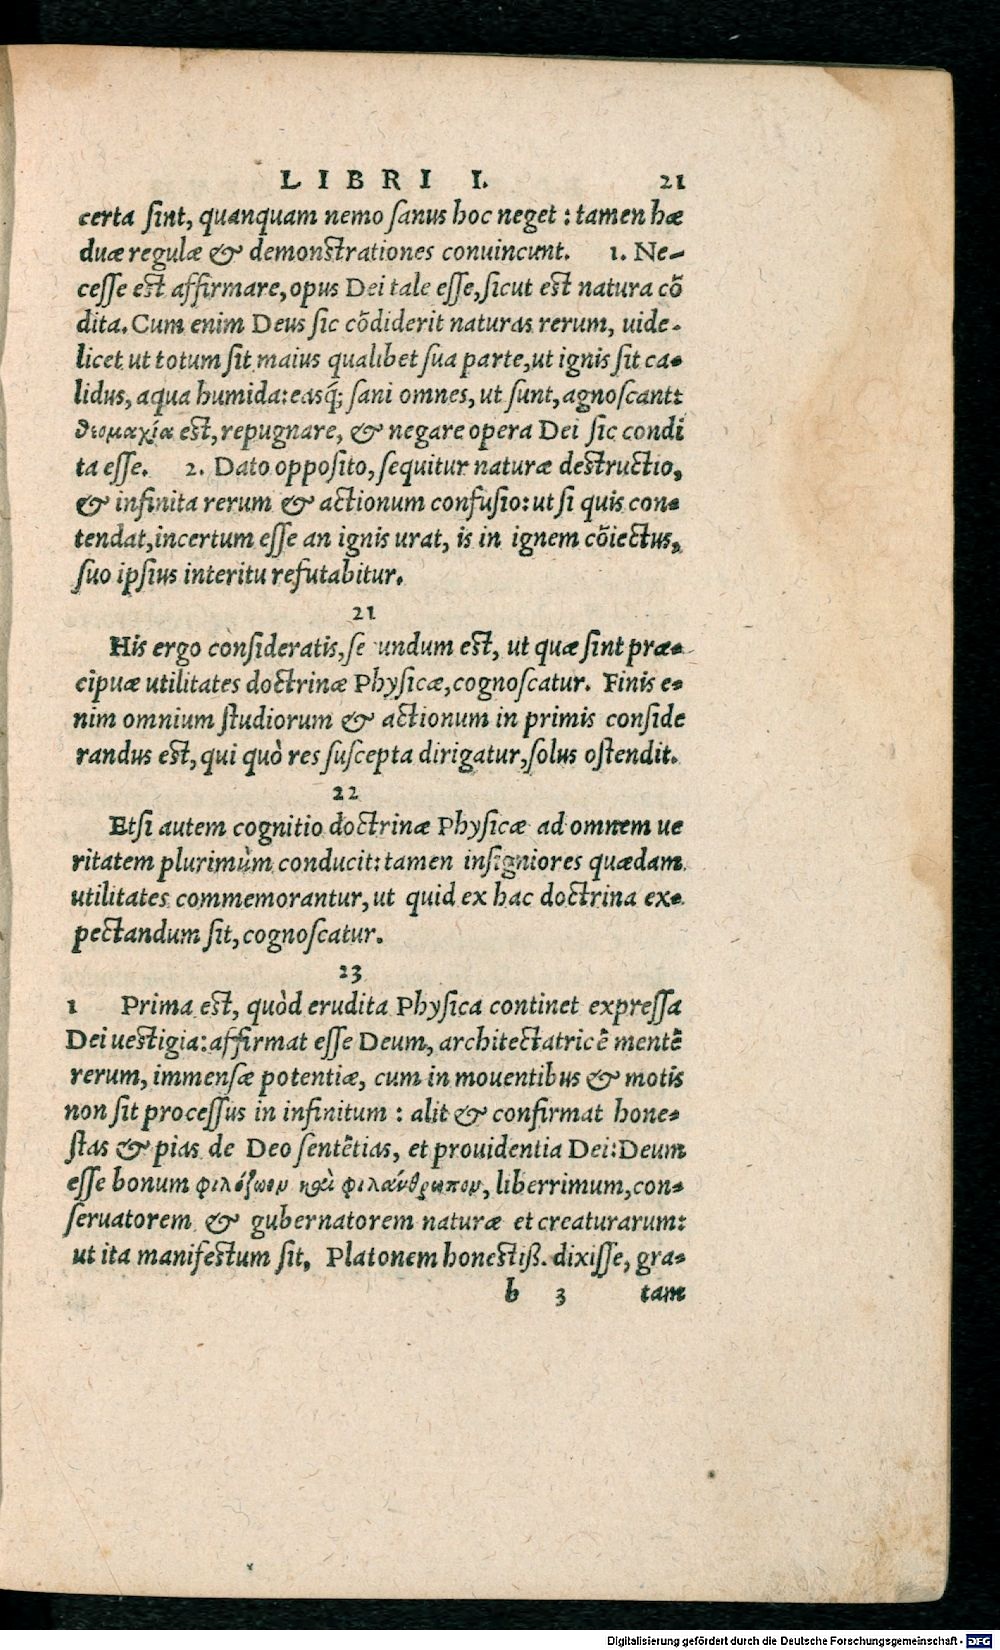 LIBRI I. 21
certa sint, quanquam nemo sanus hoc neget : tamen hæ
duæ regulæ & demonstrationes conuincunt. 1. Ne-
cesse est affirmare, opus Dei tale esse, sicut est natura cō
dita. Cum enim Deus sic cōdiderit naturas rerum, uide-
licet ut totum sit maius qualibet sua parte, ut ignis sit ca-
lidus, aqua humida: easq́; sani omnes, ut sunt, agnoscant:
θεομαχία est, repugnare, & negare opera Dei sic condi
ta esse. 2. Dato opposito, sequitur naturæ destructio,
& infinita rerum & actionum confusio: ut si quis con-
tendat, incertum esse an ignis urat, is in ignem cōiectus,
suo ipsius interitu refutabitur.
21
His ergo consideratis, se undum est, ut quæ sint præ-
cipuæ utilitates doctrinæ Physicæ, cognoscatur. Finis e-
nim omnium studiorum & actionum in primis conside
randus est, qui quò res suscepta dirigatur, solus ostendit.
22
Etsi autem cognitio doctrinæ Physicæ ad omnem ue
ritatem plurimùm conducit: tamen insigniores quædam
utilitates commemorantur, ut quid ex hac doctrina ex-
pectandum sit, cognoscatur.
23
1 Prima est, quòd erudita Physica continet expressa
Dei uestigia: affirmat esse Deum, architectatricē mentē
rerum, immensæ potentiæ, cum in mouentibus & motis
non sit processus in infinitum : alit & confirmat hone-
stas & pias de Deo sentētias, et prouidentia Dei: Deum
esse bonum φιλόζωον καὶ φιλάνθρωπον, liberrimum, con-
seruatorem & gubernatorem naturæ et creaturarum:
ut ita manifestum sit, Platonem honestiß. dixisse, gra-
b 3 tam
Digitalisierung gefördert durch die Deutsche Forschungsgemeinschaft - DFG